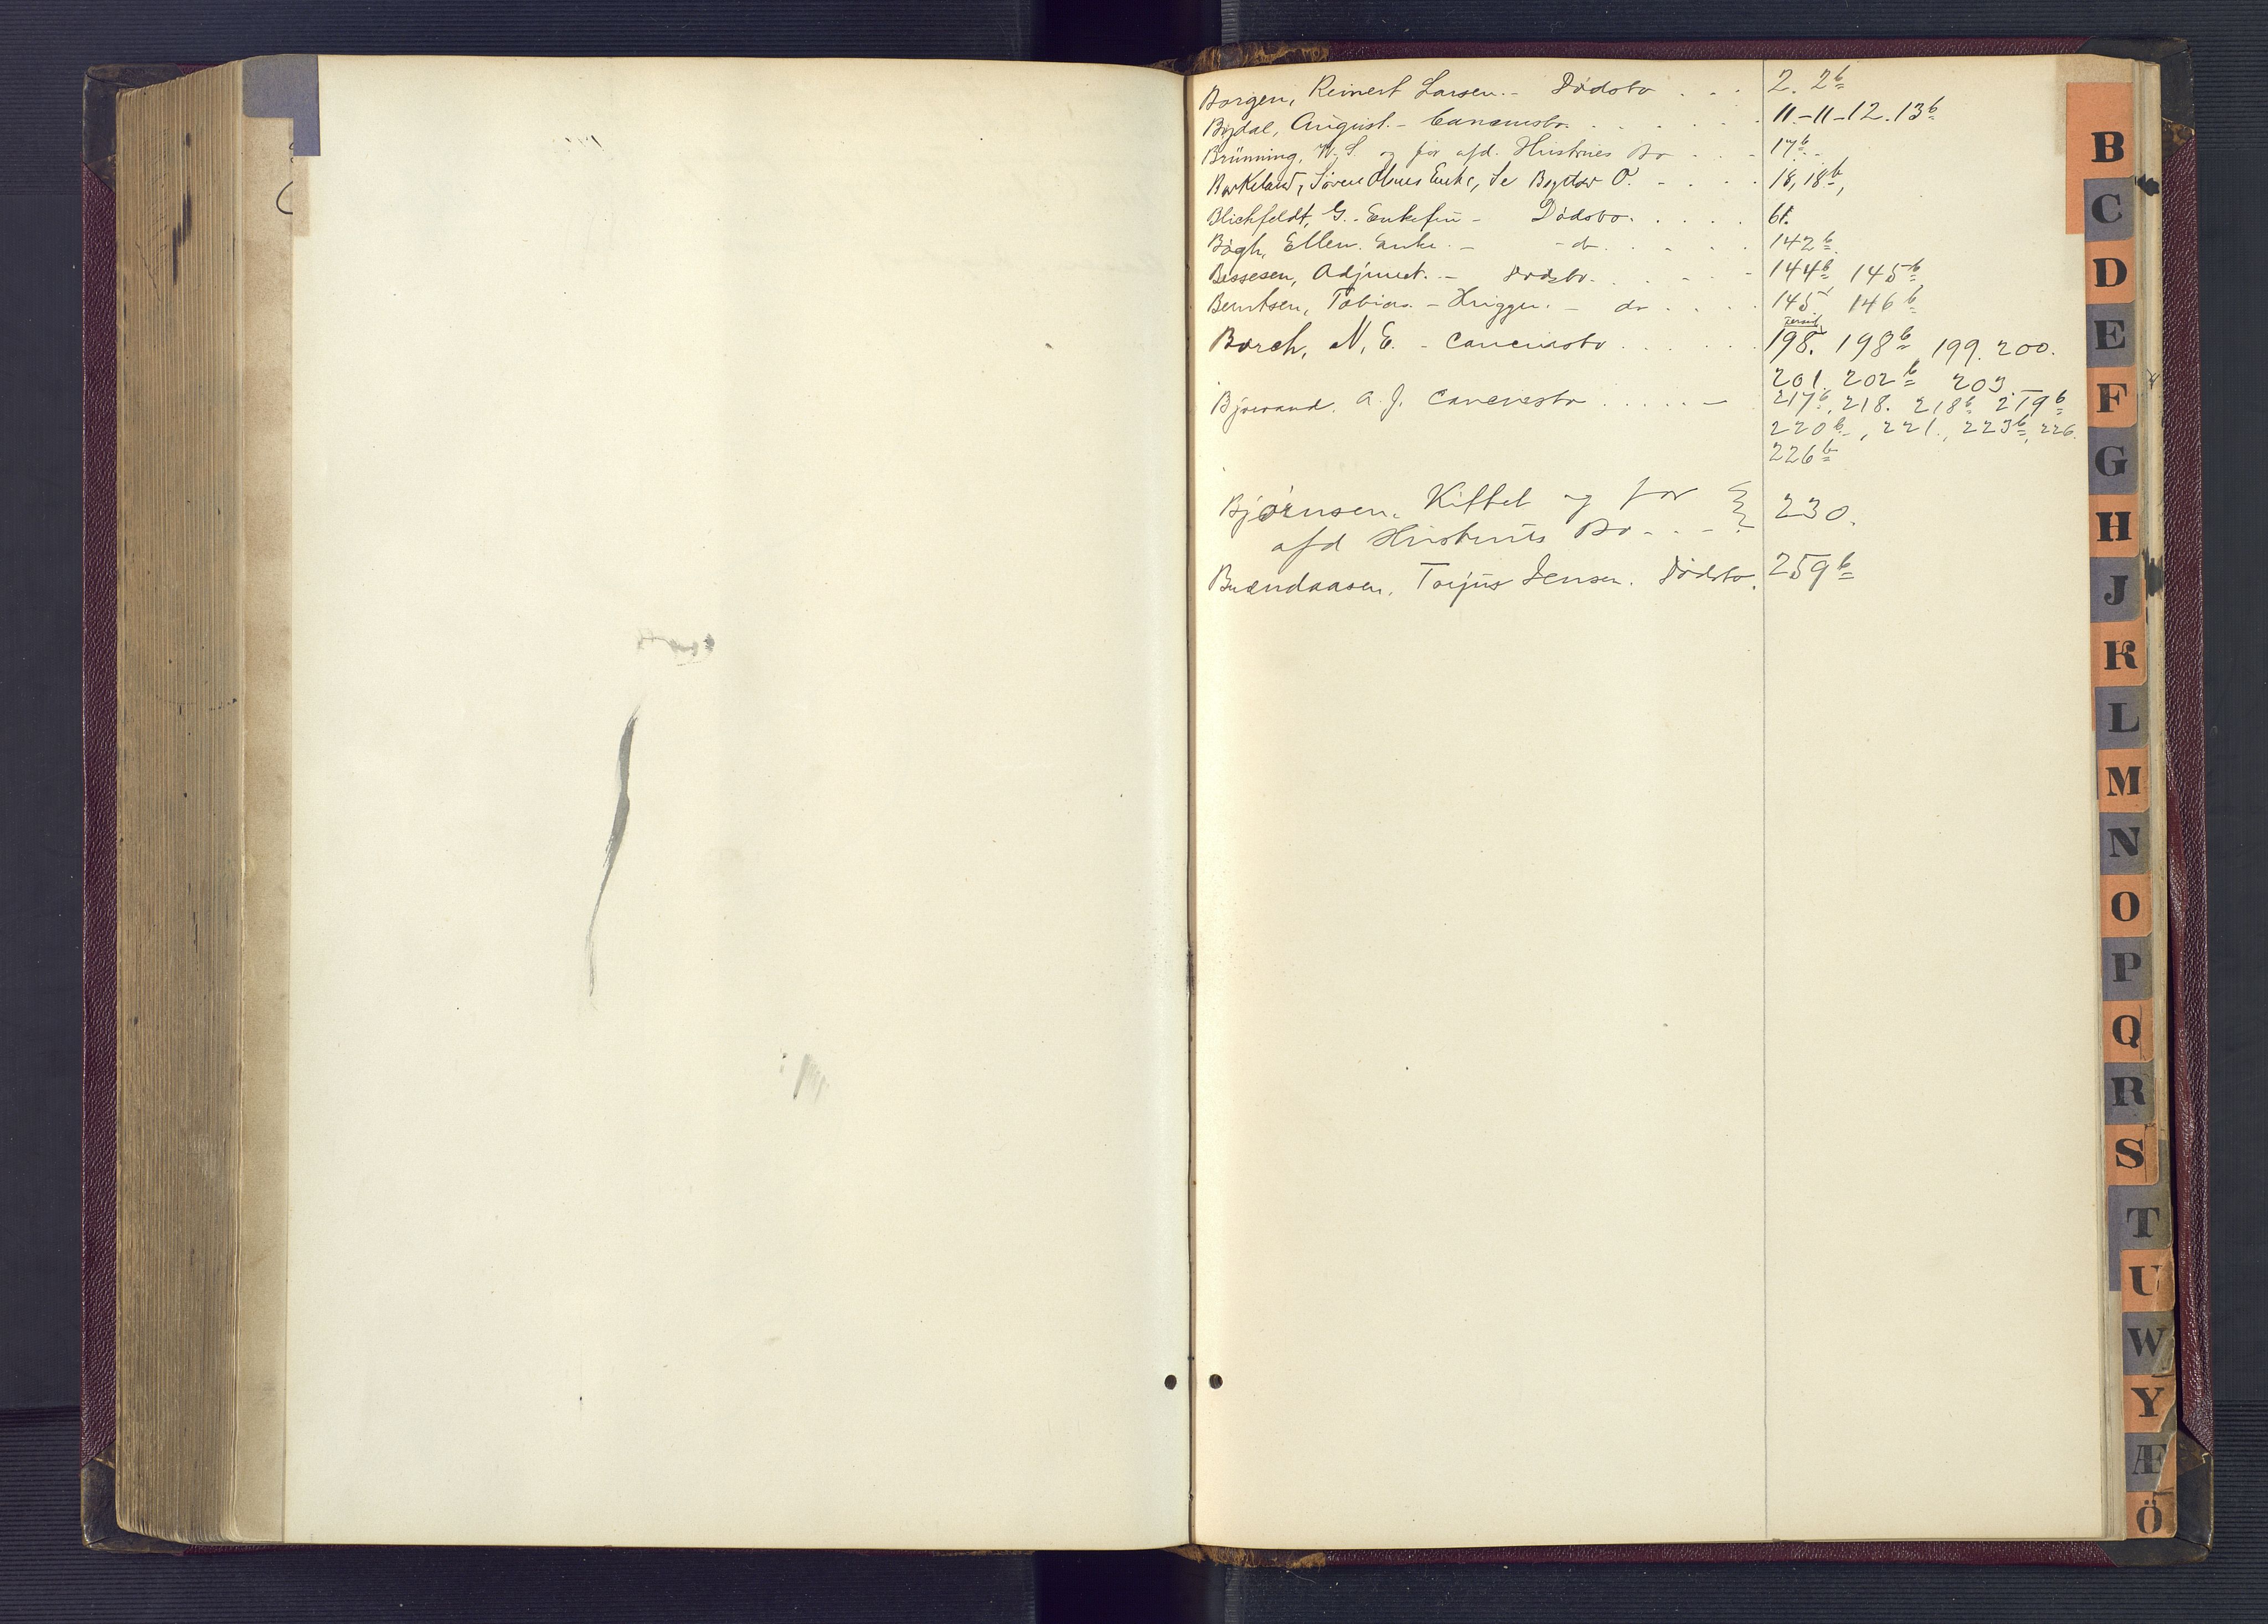 Borgen, Reinert Larsen. - Dødsbo . . . 2. 2b
Bydal, August. - Concursbo. . . . . . . 11 - 11 - 12. 13b
Brünning, W. S. og for afd. Hustrues Bo . . . 17b.
Birkeland, Søren Olsens Enke, Se O. . . . . 18, 18b,
Blichfeldt, G. Enkefru - Dødsbo. . . . . 61.
Bøgh, Ellen. Enke. - - do. . . . . 142b
Bessesen, Adjunct. - Dødsbo. . . . . 144b 145b
Berntsen, Tobias. - - do . . . . 145 146b
Borch, N. E. - Concursbo . . . . . . 198. 198b 199. 200.
201. 202b 203.
Bjorvand. A. J. Concursbo . . . . . - 217b, 218. 218b 219b
220b, 221., 223b, 226.
226b
Bjørnsen. Kittel og for
afd Hustrues Bo - . . - 230.
Brændaasen, Torjus Jensen. Dødsbo. 259b
B
C
D
E
F
G
H
J
K
L
M
N
O
P
Q
R
S
T
U
W
Y
Æ
Ö